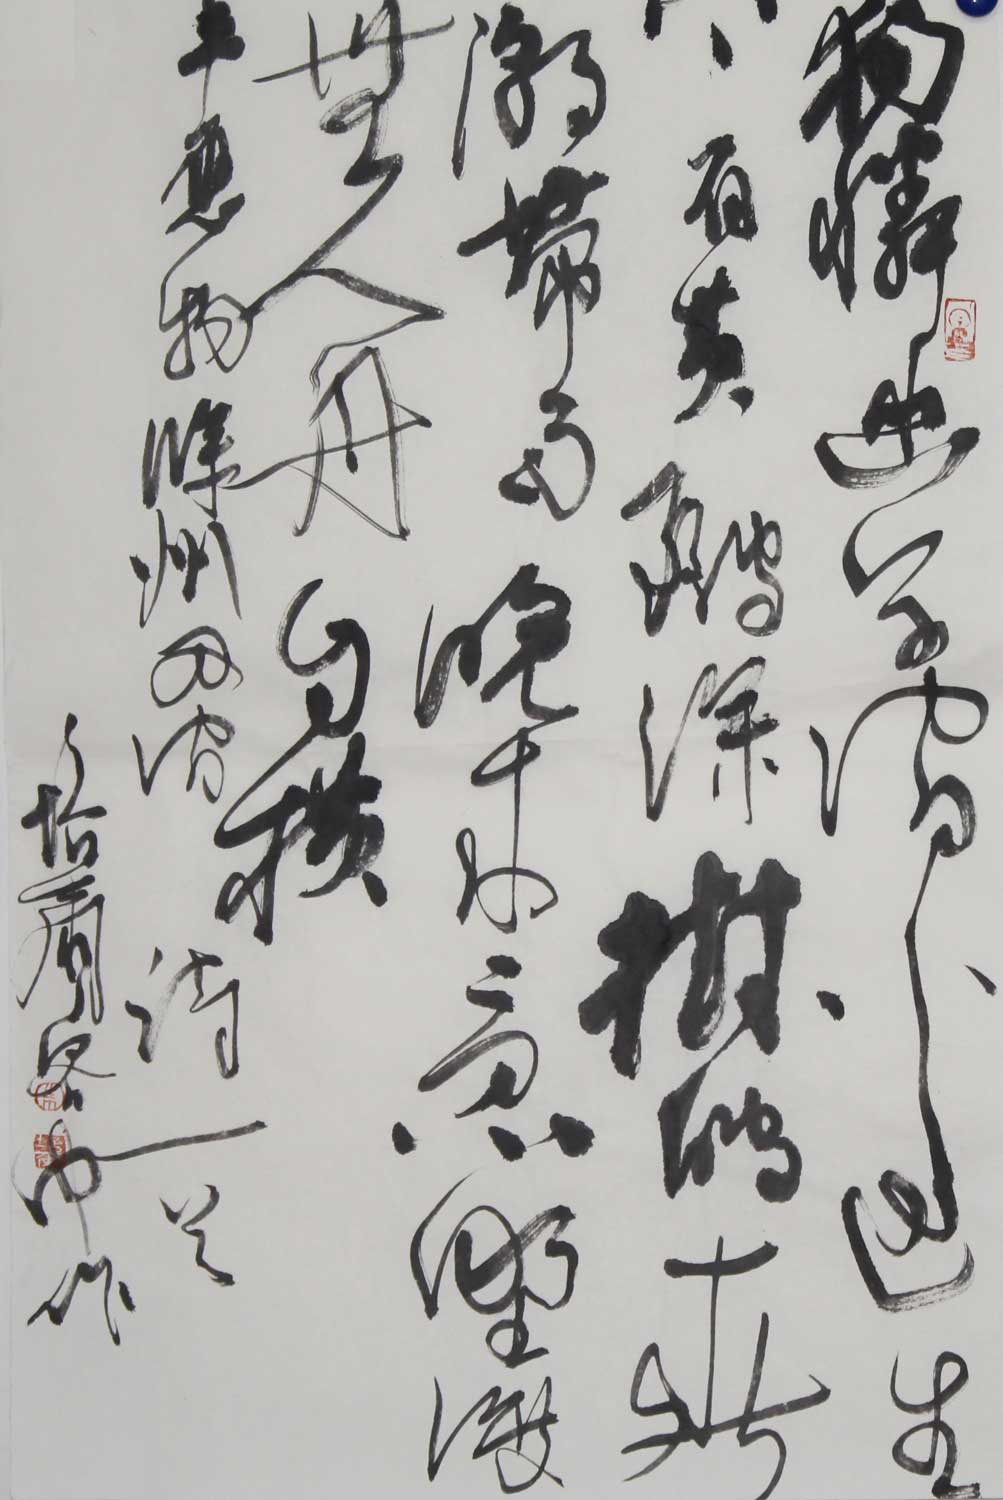 独憐幽草澗邊生
上有黄鸝深樹鳴春
潮帶雨晚来急野渡
無人舟自横
韋應物滁州西澗詩一首
作